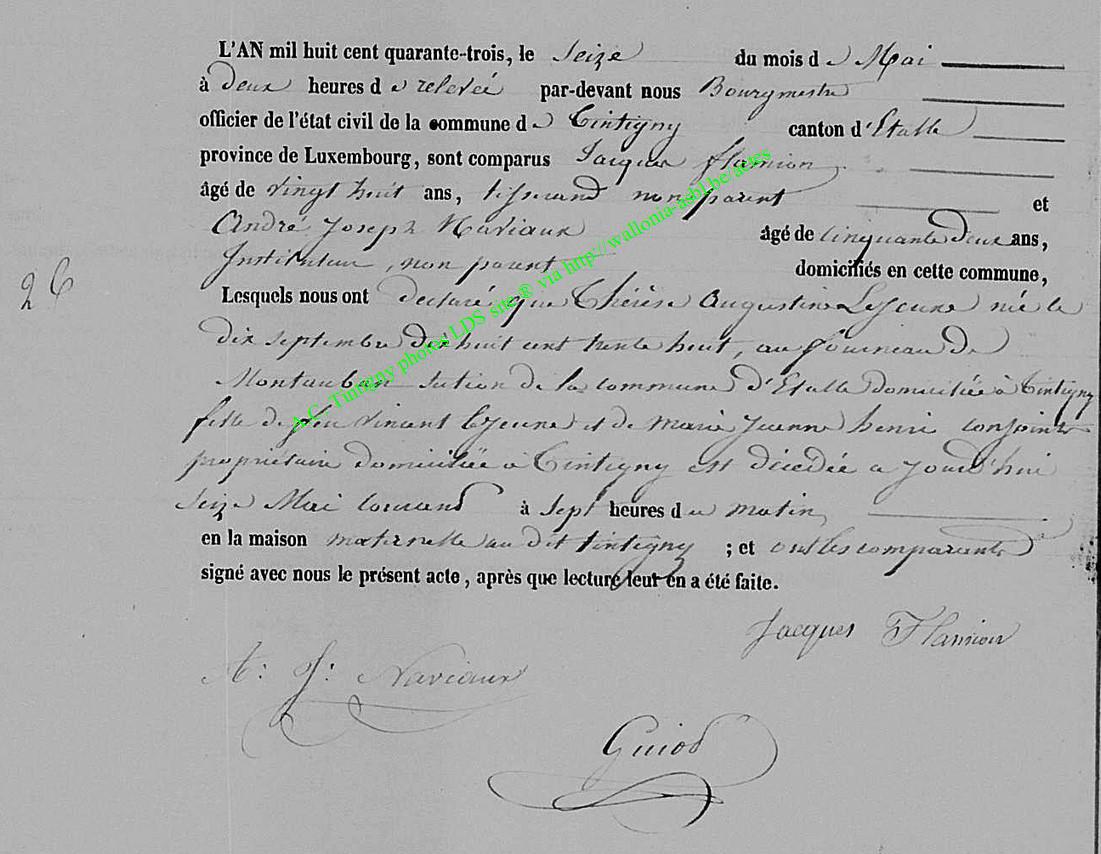 L'AN mil huit cent quarante-trois, le Seize du mois de Mai
à deux heures de relevée par-devant nous Bourgmestre
officier de l'état civil de la commune de Tintigny canton d'Etalle
province de Luxembourg, sont comparus Jacques flamion
âgé de vingt huit ans, tisserand non parent et
André Joseph Naviaux âgé de Cinquante deux ans,
Instituteur, non parent domiciliés en cette commune,
26
Lesquels nous ont declaré que Thérèse Augustine Lejeune née le
dix septembre dix huit cent trente huit, au fourneau de
Montauban section de la commune d'Etalle domiciliée à Tintigny
fille de feu vincent Lejeune et de Marie Jeanne henri conjoints
propriétaire domiciliée à Tintigny est décédée a jourd'hui
seize Mai courand à sept heures du matin
en la maison maternelle au dit tintigny ; et ont les comparants
signé avec nous le présent acte, après que lecture leur en a été faite.
Jacques Flamion
A: J: Naviaux
Guiod
A.C. Tintigny photos LDS site® via http://wallonia-asbl.be/actes